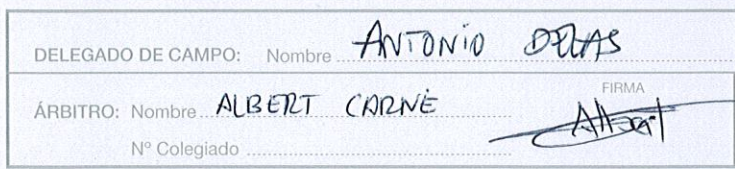 DELEGADO DE CAMPO: Nombre ANTONIO DELAS
FIRMA
ÁRBITRO: Nombre ALBERT CARNÉ
Albert
Nº Colegiado